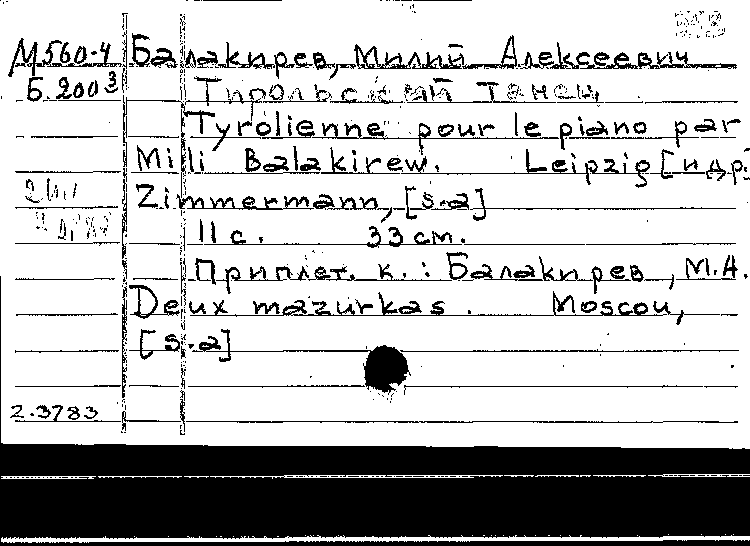 М560-4 Балакирев, Милий Алексеевич
Б.200³ Тирольский танец
Tyrolienne pour le piano par
Mili Balakirew. Leipzig [и др.]
Zimmermann, [s.a]
11 с. 33 см.
Приплет. к.: Балакирев, М.А.
Deux mazurkas. Moscou,
[s.a]
2.3783